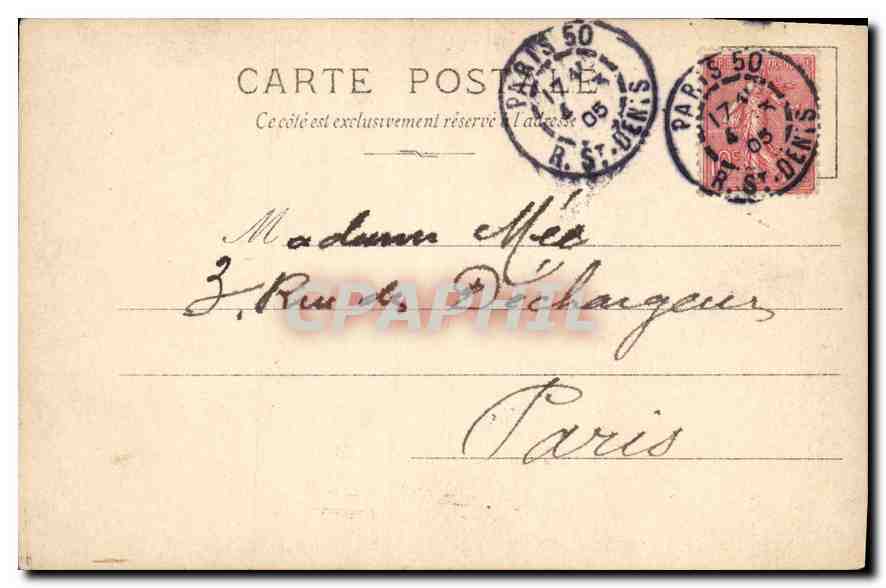 CARTE POSTALE
Ce côté est exclusivement réservé à l'adresse
PARIS 50
17 4 05
R. ST-DENIS
PARIS 50
17 4 05
R. ST-DENIS
Madame Mée
3, Rue des Déchargeurs
CPAPHIL
Paris